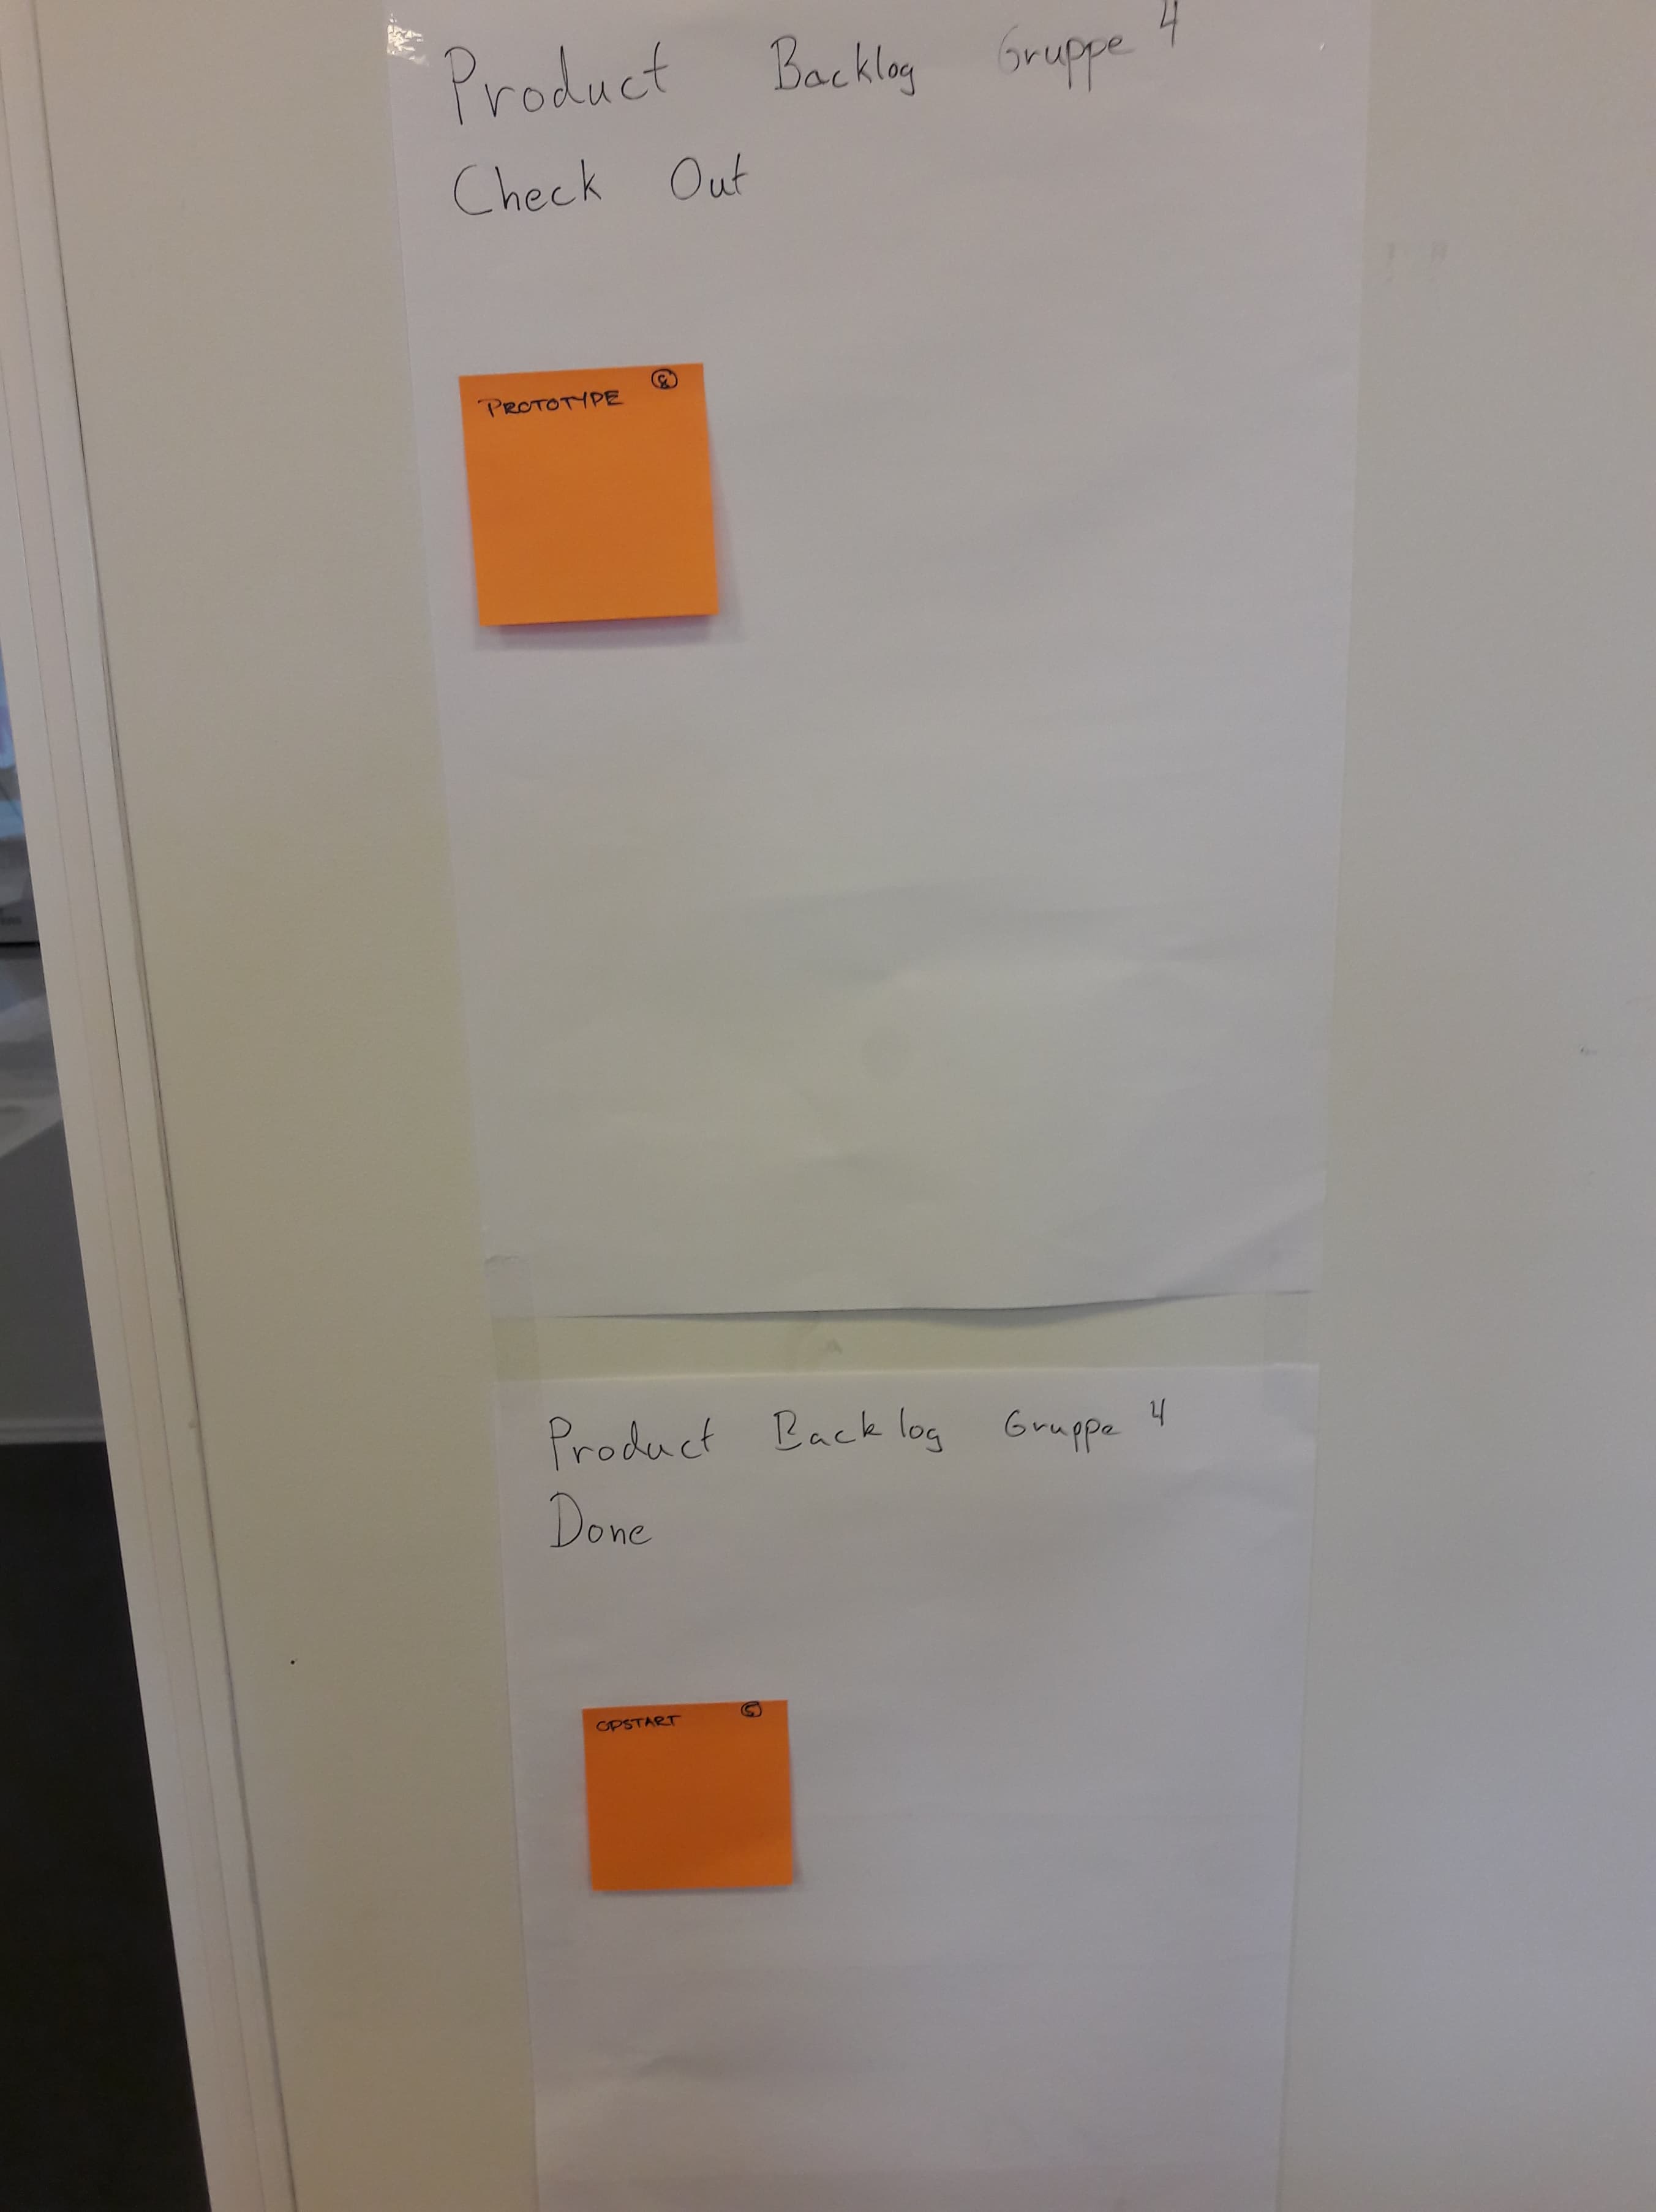 Product Backlog Gruppe 4
Check Out
8
PROTOTYPE
Product Backlog Gruppe 4
Done
OPSTART 5